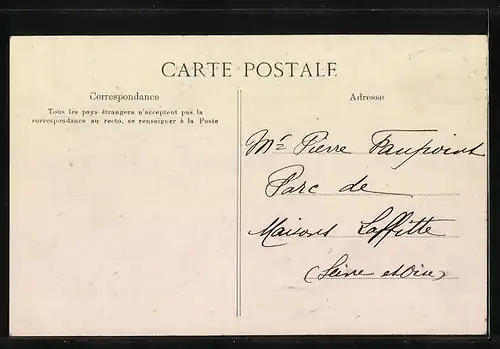 CARTE POSTALE
Correspondance
Tous les pays étrangers n'acceptent pas la
correspondance au recto, se renseigner à la Poste
Adresse
Mr Pierre Faupoint
Parc de
Maisons Laffitte
(Seine et Oise)